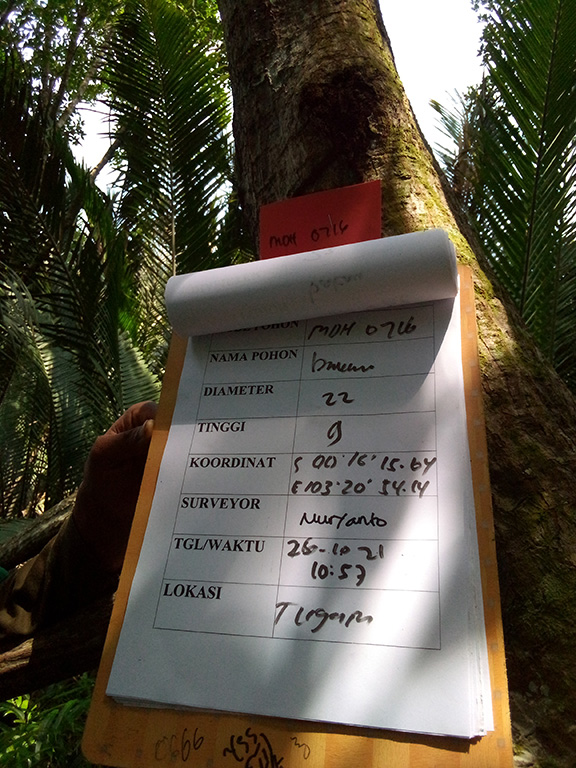 MDH 0716
POHON MDH 0716
NAMA POHON
DIAMETER 22
TINGGI 9
KOORDINAT S 00°16'15.64
E103°20'54.14
SURVEYOR Nuryanto
TGL/WAKTU 26-10-21
10:57
LOKASI